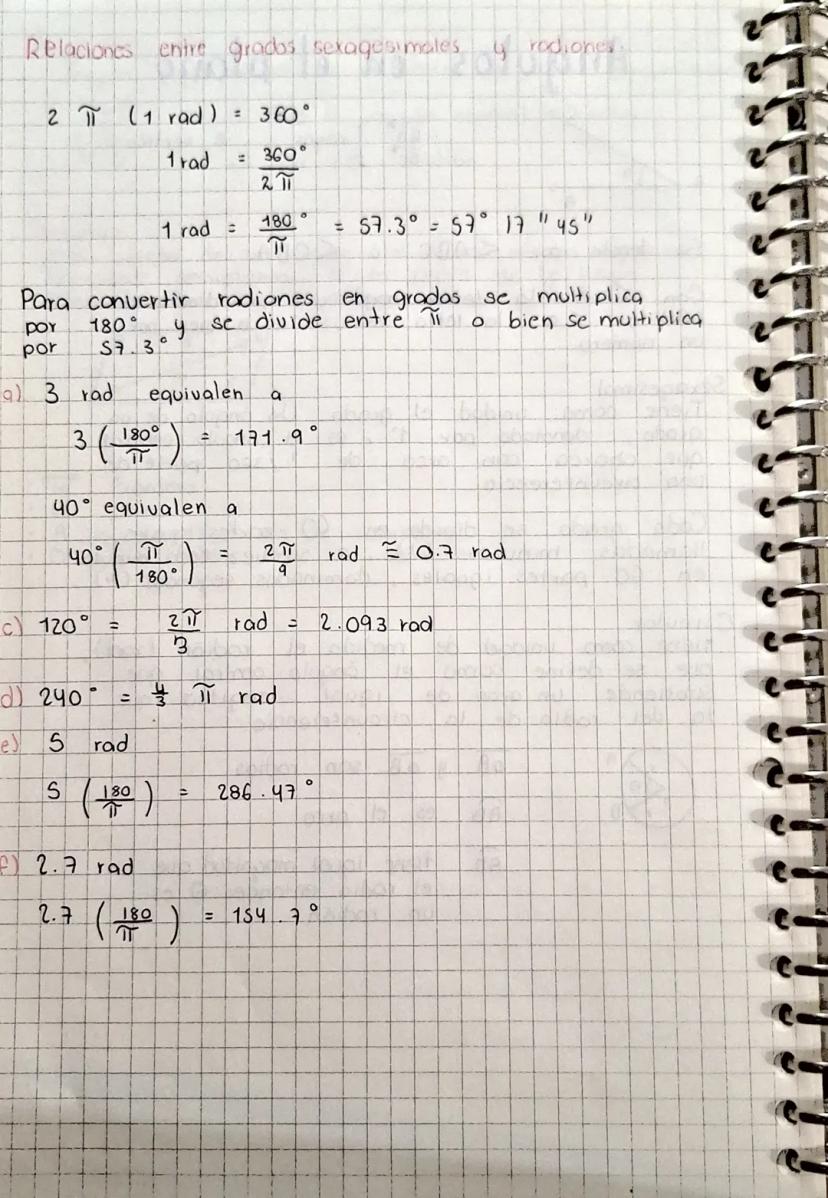 Relaciones entre grados sexagesimales y radiones.
2 π (1 rad) = 360°
1 rad = 360° / 2π
1 rad = 180° / π = 57.3° = 57° 17 " 45"
Para convertir radiones en grados se multiplica
por 180° y se divide entre π o bien se multiplica
por 57.3°
a) 3 rad equivalen a
3 (180° / π) = 171.9°
40° equivalen a
40° (π / 180°) = 2π / 9 rad ≈ 0.7 rad
c) 120° = 2π / 3 rad = 2.093 rad
d) 240° = 4/3 π rad
e) 5 rad
5 (180 / π) = 286.47°
f) 2.7 rad
2.7 (180 / π) = 154.7°